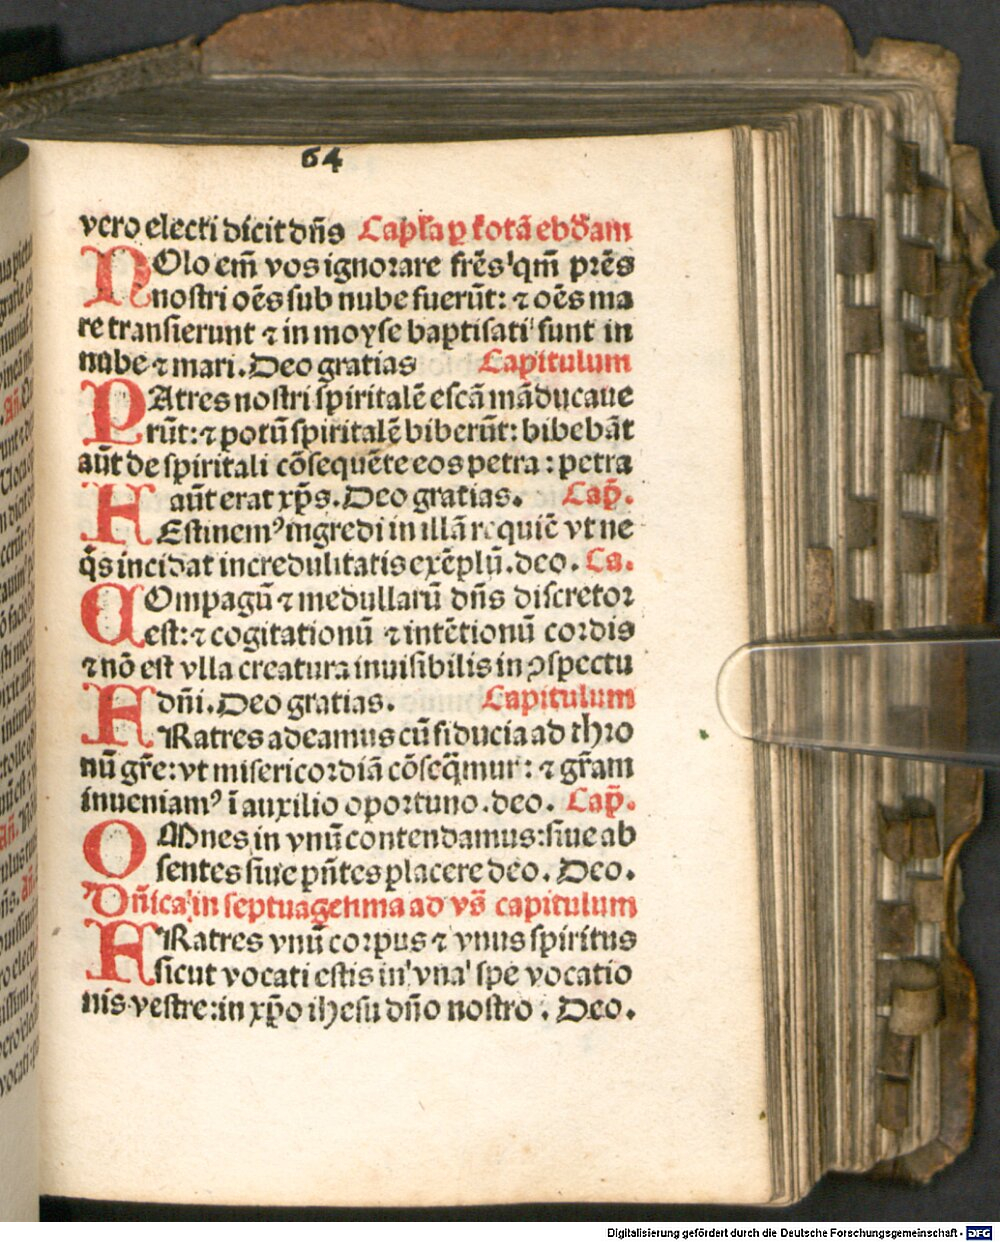 64
vero electi dicit dn̄s Capl̄a ꝑ totā ebdam
NOlo em̄ vos ignorare frēs qm̄ prēs
nostri oēs sub nube fuerūt: ⁊ oēs ma
re transierunt ⁊ in moyse baptisati sunt in
nube ⁊ mari. Deo gratias Capitulum
PAtres nostri spiritalē escā māducaue
rūt: ⁊ potū spiritalē biberūt: bibebāt
aūt de spiritali cōsequēte eos petra: petra
aūt erat xp̄s. Deo gratias. Cap̄.
FEstinemꝰ ingredi in illā requiē vt ne
q̄s incidat incredulitatis exēplū. deo. Ca.
COmpagū ⁊ medullarū dn̄s discretor
est: ⁊ cogitationū ⁊ intētionū cordis
⁊ nō est vlla creatura inuisibilis in ꝯspectu
dn̄i. Deo gratias. Capitulum
FRatres adeamus cū fiducia ad thro
nū gr̄e: vt misericordiā cōseq̄mur: ⁊ gr̄am
inueniamꝰ ī auxilio oportuno. deo. Cap̄.
OMnes in vnū contendamus: siue ab
sentes siue pn̄tes placere deo. Deo.
Dn̄ica in septuagesima ad vs̄ capitulum
FRatres vnū corpus ⁊ vnus spiritus
sicut vocati estis in vna spe vocatio
nis vestre: in xp̄o ihesu dn̄o nostro. Deo.
Digitalisierung gefördert durch die Deutsche Forschungsgemeinschaft - DFG